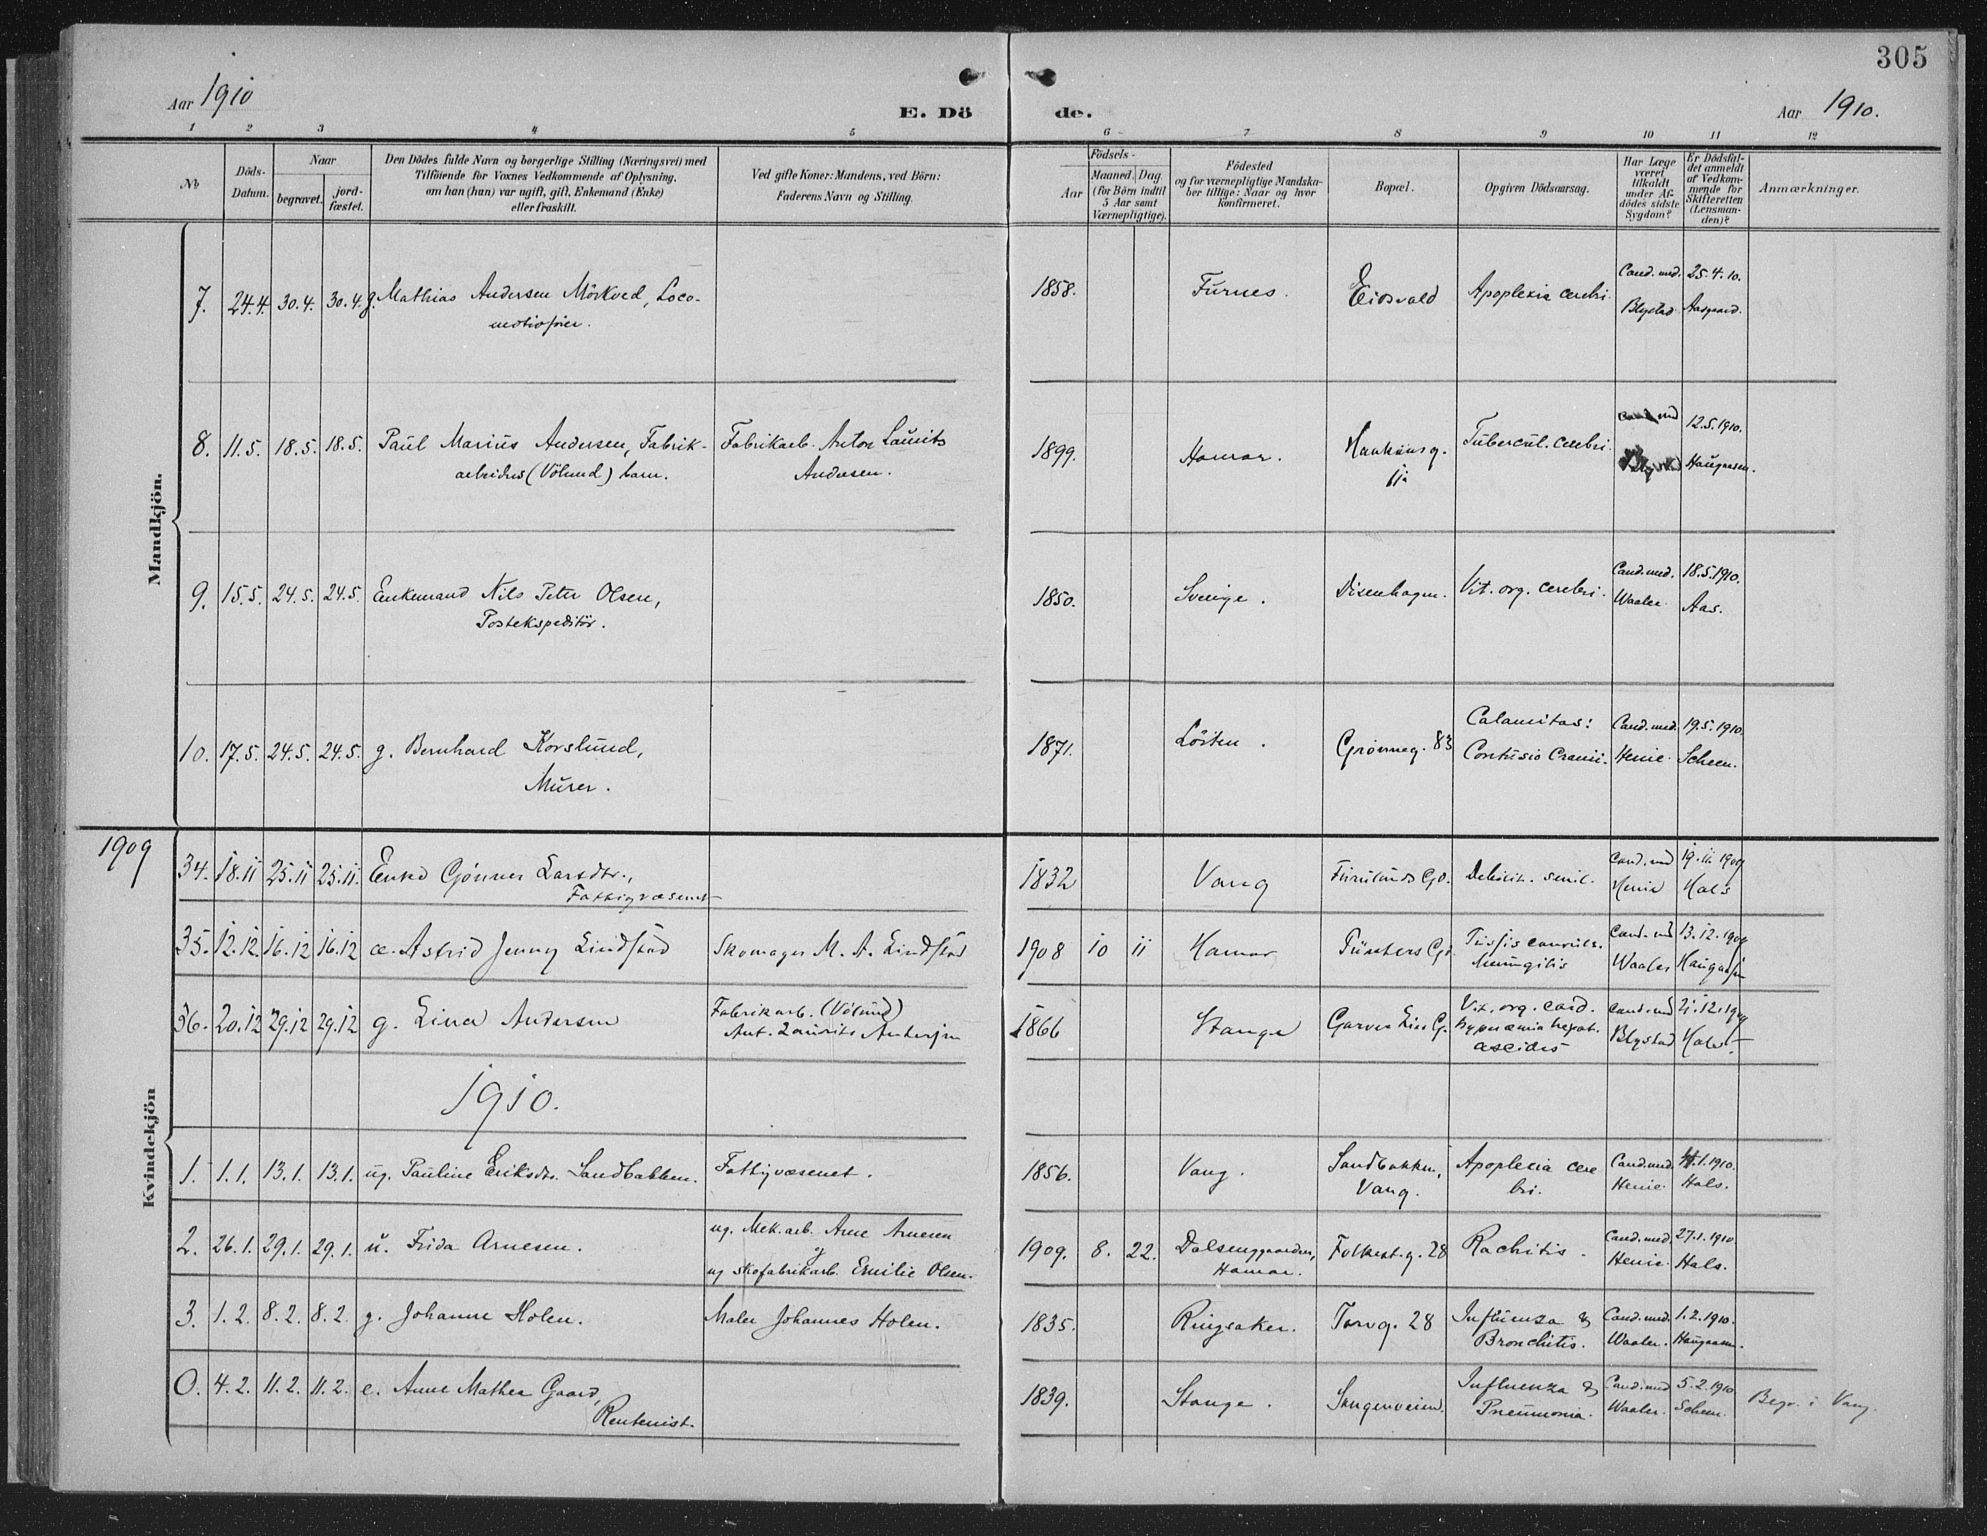 305
Aar 1910
E. Dö de.
Aar 1910.
1 2 3 4 5 6 7 8 9 10 11 12
No
Döds-Datum.
Naar
begravet. jordfæstet.
Den Dödes fulde Navn og borgerlige Stilling (Næringsvei) med
Tilföiende for Voxnes Vedkommende af Oplysning,
om han (hun) var ugift, gift, Enkemand (Enke)
eller fraskilt.
Ved gifte Koner: Mandens, ved Börn:
Faderens Navn og Stilling.
Födsels-
Aar Maaned. Dag.
(for Börn indtil
5 Aar samt
Værnepligtige).
Födested
og for værnepligtige Mandskaber tillige: Naar og hvor
Konfirmeret.
Bopæl.
Opgiven Dödsaarsag.
Har Læge
været
tilkaldt
under Afdödes sidste
Sygdom?
Er Dödsfaldet anmeldt
af Vedkommende for
Skifteretten
(Lensmanden)?
Anmærkninger.
Mandkjön.
7. 24.4. 30.4. 30.4. g. Mathias Andersen Mörkved, Loco- 1858. Furnes. Eidsvold Apoplexia cerebri. Cand. med. 25.4.10.
motivfører. Blystad Aasgaard.
8. 11.5. 18.5. 18.5. Paul Marius Andersen, Fabrik- Fabrikarb. Anton Laurits 1899. Hamar. Haakonsg. Tubercul. cerebri. Cand. med 12.5.1910.
arbeiders (Völund) barn. Andersen. 11a Haugaasen.
9. 15.5. 24.5. 24.5. Enkemand Nils Peter Olsen, 1850. Sverige. Disenhagen. Vit. org. cerebri. Cand. med. 18.5.1910.
Postekspeditör. Waaler. Aas.
10. 17.5. 24.5. 24.5. g. Bernhard Korslund, 1871. Löiten. Grönneg. 83 Calamitas: Cand. med. 19.5.1910.
Murer. Contusio Cranii. Henie. Scheen.
1909
Kvindekjön
34. 18.11 25.11 25.11. Enke Gönner Larsdtr., 1832 Vang Furulunds Gd. Debilit. senil. Cand. med 19.11.1909
Fattigvæsenet Henie Hals
35. 12.12. 16.12 16.12 æ. Astrid Jenny Lindstad Skomager M. A. Lindstad 1908 10 11 Hamar Cand. med 13.12.1909
Meningitis Waaler Haugaasen
36. 20.12 29.12 29.12 g. Lina Andersen Fabrikarb. (Völund) 1866 Stange Vit. org. card. Cand. med 21.12.1909
Ant. Laurits Andersen hyperæmia hepat. Blystad
ascides
1910.
1. 1.1. 13.1. 13.1. ug. Pauline Eriksdtr. Sandbakken. Fattigvæsenet. 1856. Vang. Sandbakken, Apoplexia cere Cand. med 4.1.1910.
Vang. bri. Henie. Hals.
2. 26.1. 29.1. 29.1. u. Frida Arnesen. ug. Mek. arb. Arne Arnesen 1909. 8. 22. Dalsenggaarden, Folkest. g. 28 Rachitis. Cand. med. 27.1.1910
og
ug skofabrikarb. Emilie Olsen. Hamar. Henie. Hals.
3. 1.2. 8.2. 8.2. g. Johanne Holen. Maler Johannes Holen. 1835. Ringsaker. Torvg. 28 Influenza & Cand. med. 1.2.1910.
Bronchitis. Waaler. Haugaasen.
0. 4.2. 11.2. 11.2. e. Anne Mathea Gaard, 1839. Stange. Stangeveien. Influenza & Cand. med 5.2.1910 Begr. i Vang.
Rentenist. Pneumonia. Waaler. Scheen.